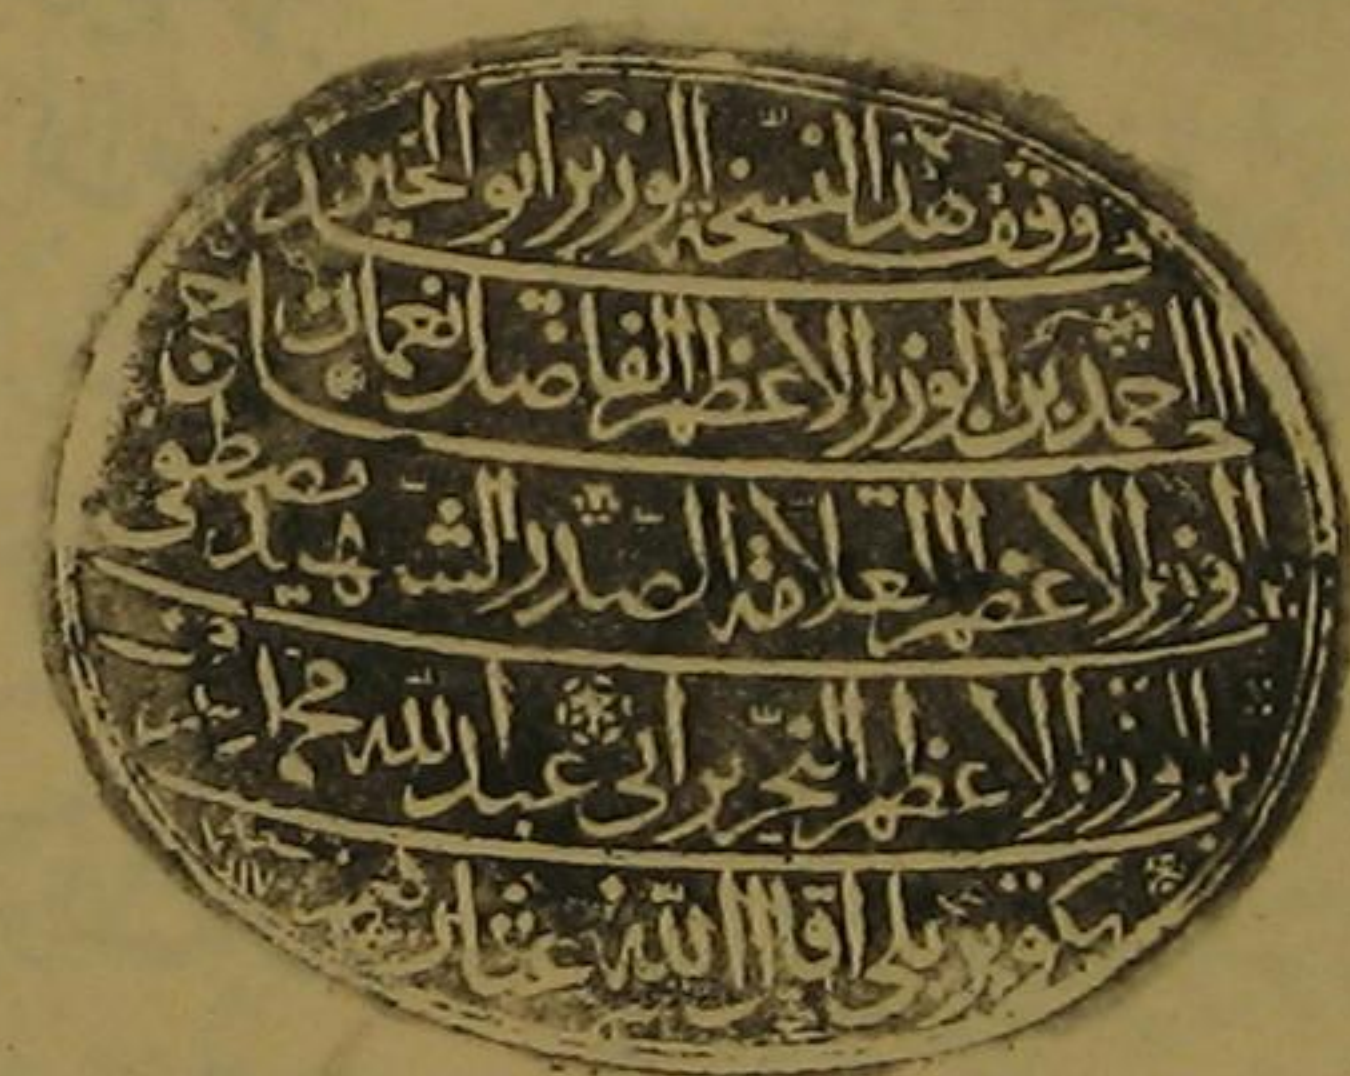 وقف هذا النسخة الوزير ابو الخير
احمد بن الوزير الاعظم الفاضل نعمان
بن الوزير الاعظم العلامة الصدر الشهيد مصطفى
بن الوزير الاعظم النحرير ابي عبد الله محمد
كوپريلي اقال الله عثارهم